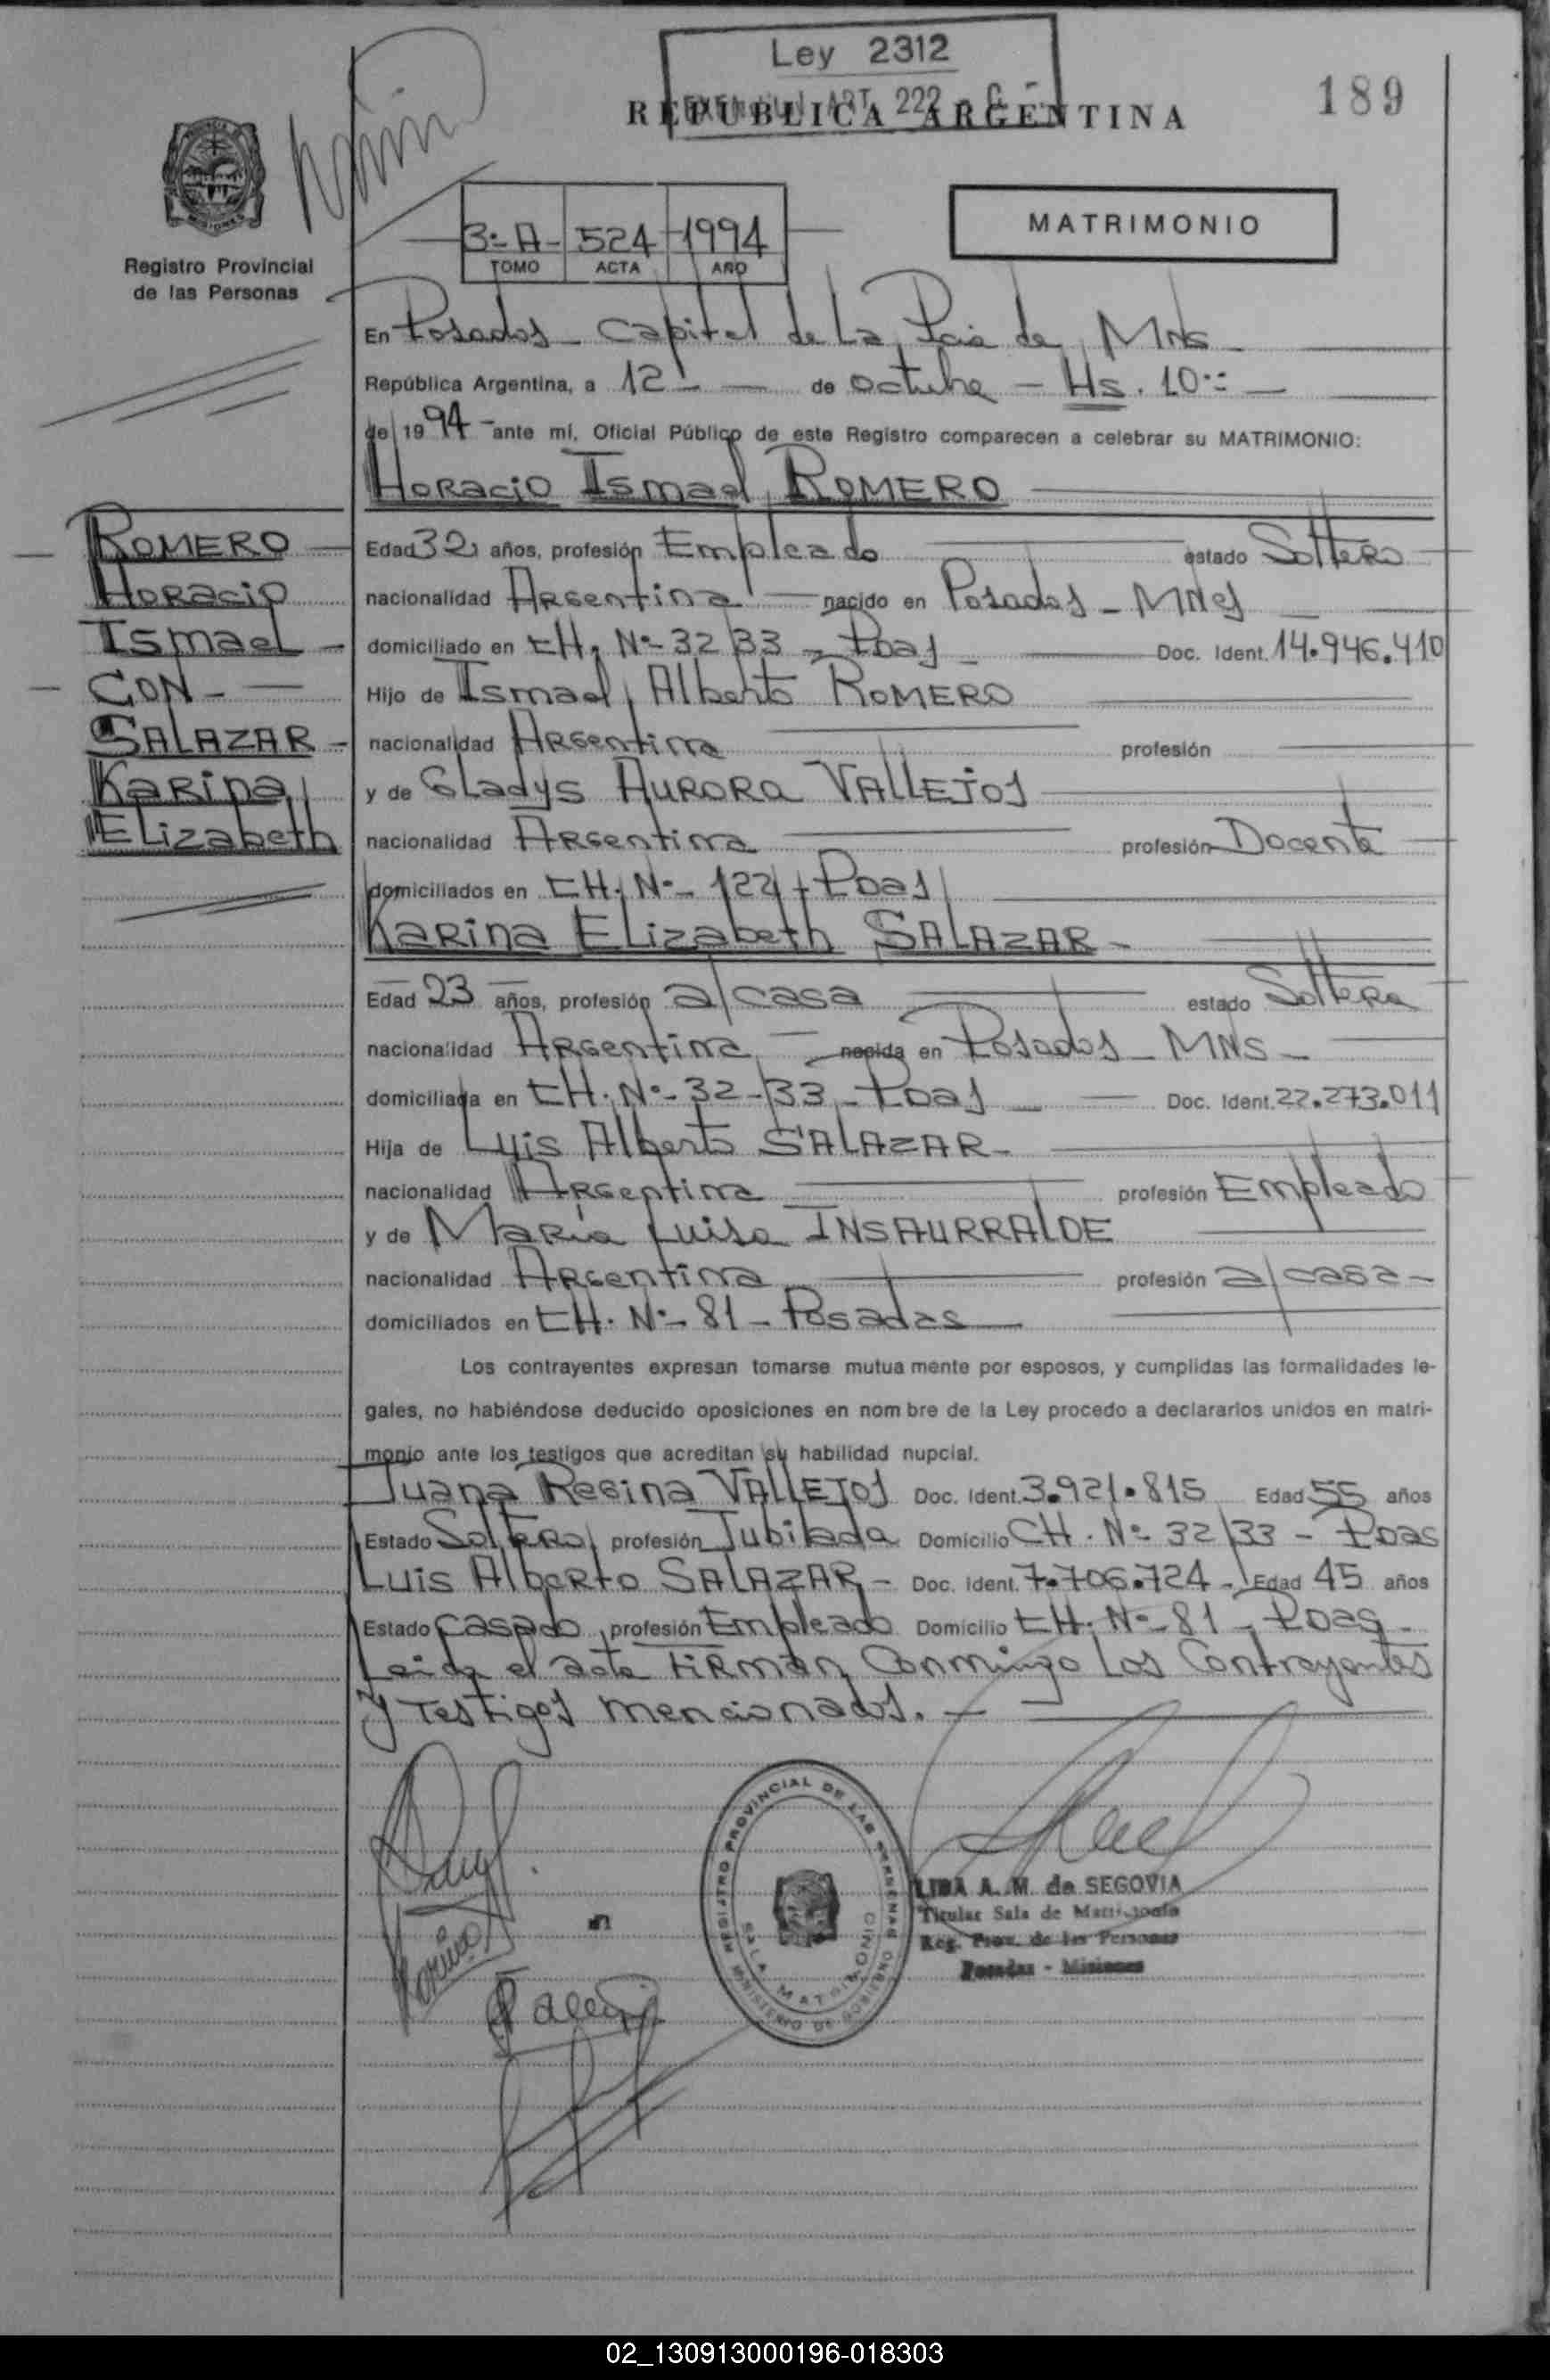 Ley 2312
ART. 222
REPUBLICA ARGENTINA
189
MISIONES
Registro Provincial
de las Personas
3:- A- 524 1994
TOMO ACTA AÑO
MATRIMONIO
En Posadas - Capital de La Pcia de Mns -
República Argentina, a 12.- de octubre - Hs. 10:=
de 1994 - ante mí, Oficial Público de este Registro comparecen a celebrar su MATRIMONIO:
Horacio Ismael ROMERO
ROMERO
Horacio
Ismael -
CON -
SALAZAR -
Karina
Elizabeth
Edad 32 años, profesión Empleado estado Soltero
nacionalidad Argentina nacido en Posadas - MNes
domiciliado en CH. Nº- 32/33 - Pdas - Doc. Ident. 14.946.410
Hijo de Ismael Alberto ROMERO
nacionalidad Argentina profesión
y de Gladys AURORA VALLEJOS
nacionalidad Argentina profesión Docente
domiciliados en CH. Nº- 122 - Pdas
Karina Elizabeth SALAZAR -
Edad 23 años, profesión a/casa estado Soltera
nacionalidad Argentina nacida en Posadas - MNS -
domiciliada en CH. Nº- 32-33 - Pdas Doc. Ident. 22.273.011
Hija de Luis Alberto SALAZAR -
nacionalidad Argentina profesión Empleado
y de María Luisa INSAURRALDE
nacionalidad Argentina profesión a/casa -
domiciliados en CH. Nº- 81 - Posadas
Los contrayentes expresan tomarse mutua mente por esposos, y cumplidas las formalidades le-
gales, no habiéndose deducido oposiciones en nom bre de la Ley procedo a declararlos unidos en matri-
monio ante los testigos que acreditan su habilidad nupcial.
Juana Regina VALLEJOS Doc. Ident. 3.921.815 Edad 55 años
Estado Soltera profesión Jubilada Domicilio CH. Nº 32/33 - Pdas
Luis Alberto SALAZAR - Doc. Ident. 7.706.724 - Edad 45 años
Estado Casado profesión Empleado Domicilio CH. Nº- 81 - Pdas -
Leida el acta Firman Conmingo Los Contrayentes
y Testigos mencionados. -
REGISTRO PROVINCIAL DE LAS PERSONAS
SALA MATRIMONIO
MINISTERIO DE GOBIERNO
Karina
LIDA A. M. de SEGOVIA
Titular Sala de Matrimonio
Reg. Prov. de las Personas
Posadas - Misiones
02_130913000196-018303